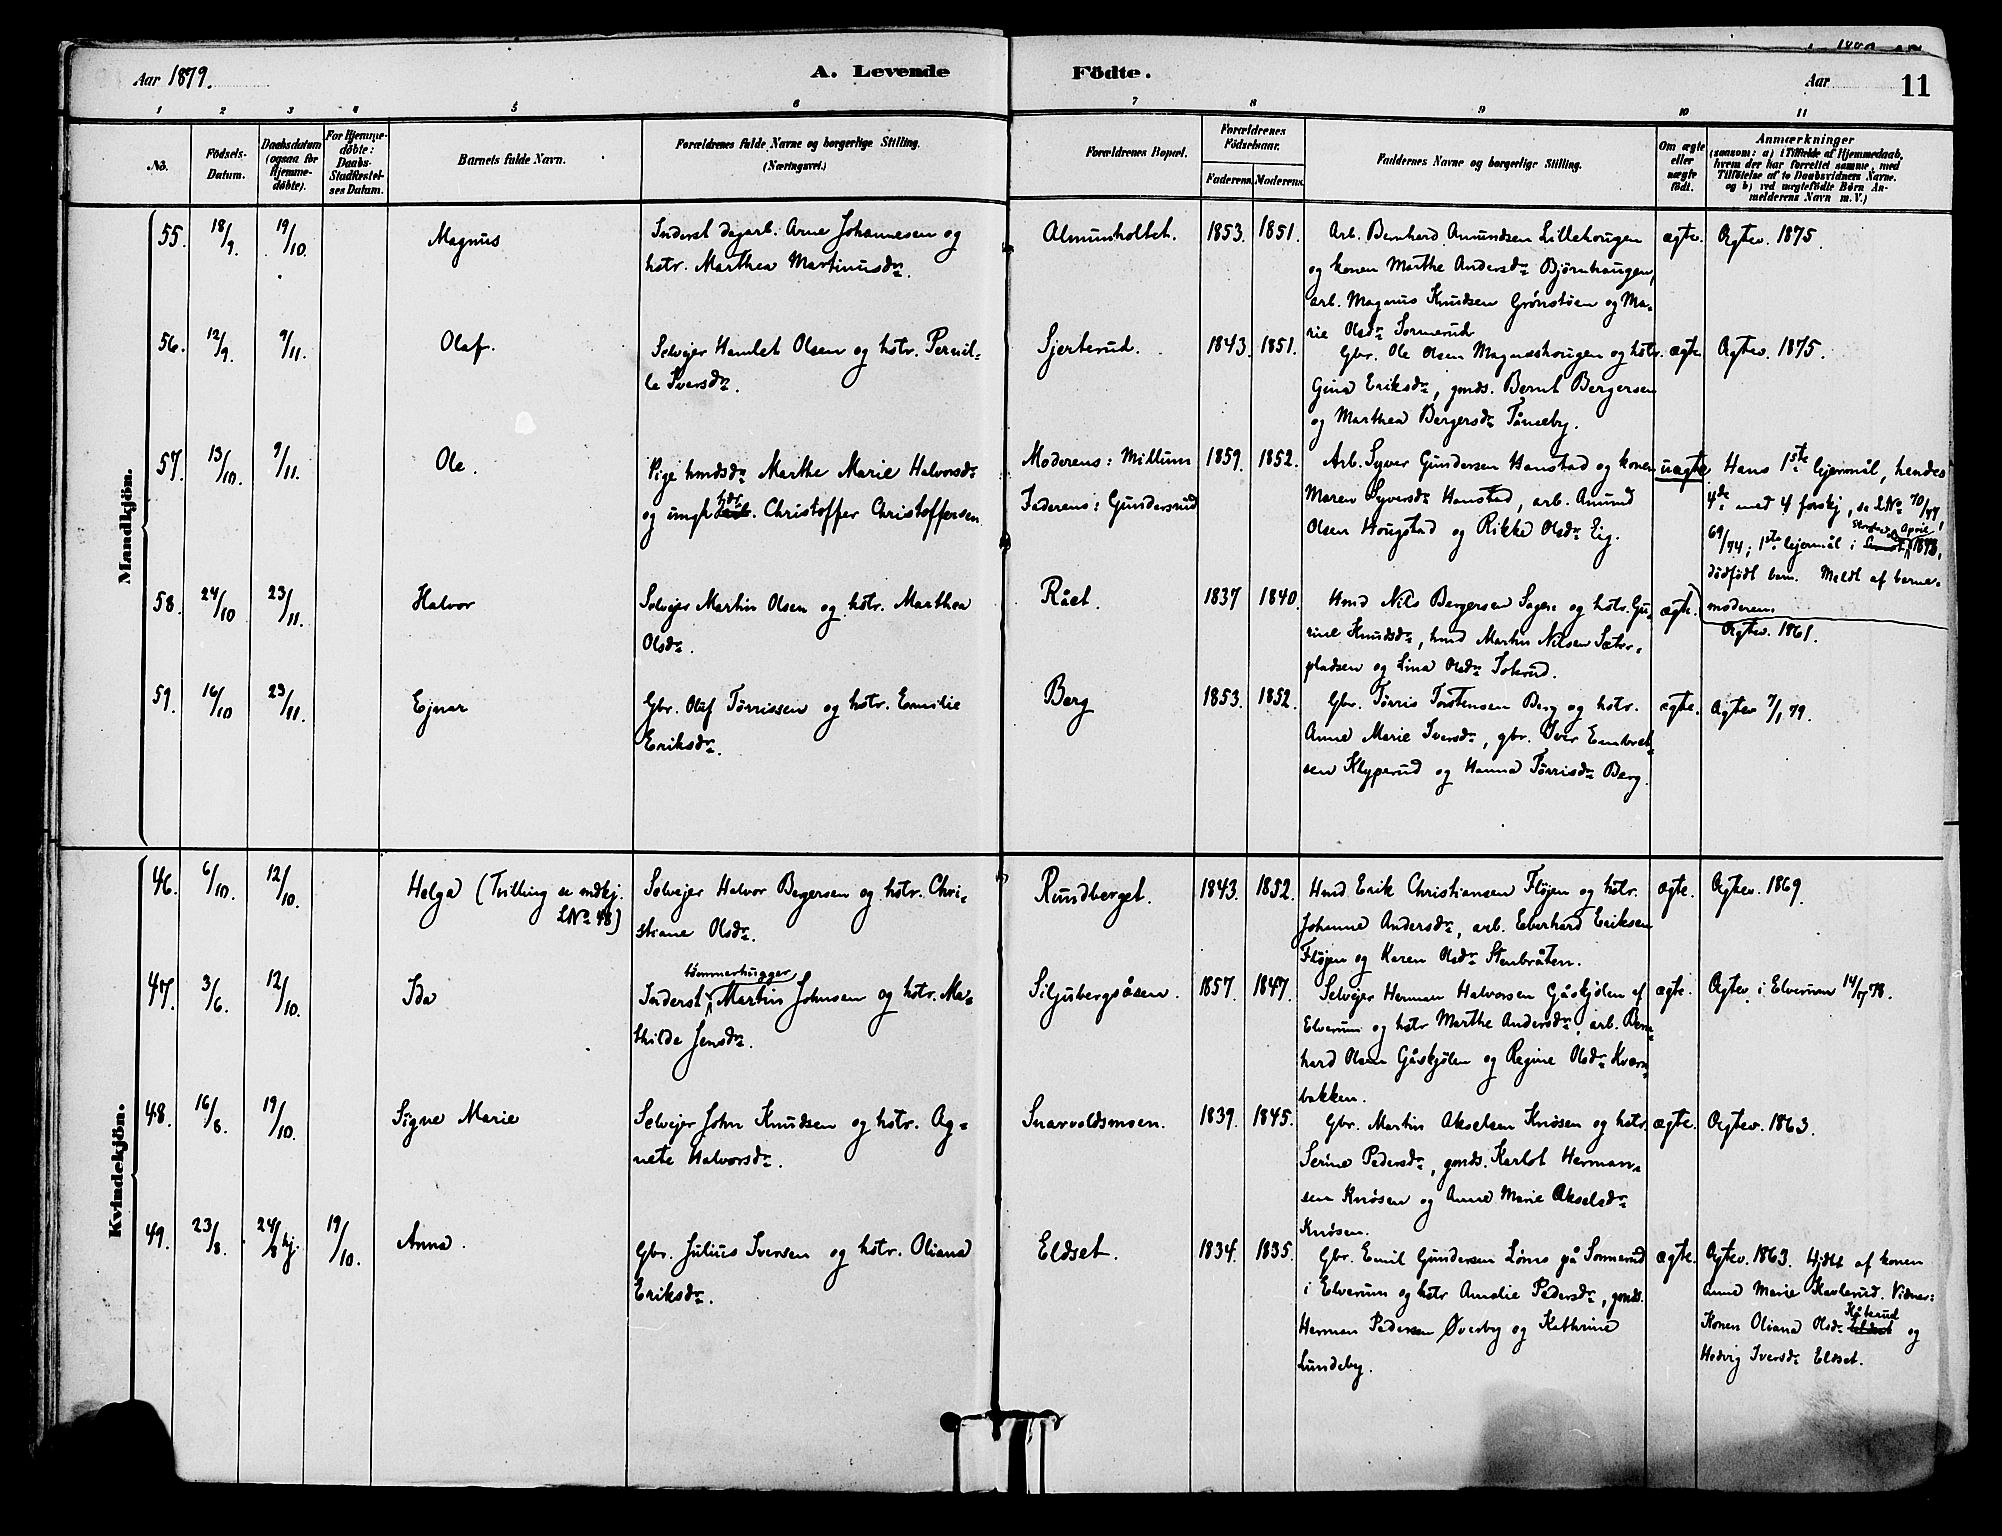 Aar 1879.
A. Levende Födte.
Aar 11
1 2 3 4 5 6 7 8 9 10 11
No.
Födsels-Datum.
Daabsdatum (ogsaa for Hjemme-døbte).
For Hjemme-døbte: Daabs-Stadfæstelses Datum.
Barnets fulde Navn.
Forældrenes fulde Navne og borgerlige Stilling.
(Næringsvei.)
Forældrenes Bopæl.
Forældrenes Födselsaar.
Faderens. Moderens.
Faddernes Navne og borgerlige Stilling.
Om ægte eller uægte födt.
Anmærkninger
(saasom: a) i Tilfælde af Hjemmedaab,
hvem der har forrettet samme, med
Tilföielse af to Daabsvidners Navne.
og b) ved uægtefödte Börn An-
melderens Navn m. V.)
Mandkjön.
55. 18/9. 19/10. Magnus
Inderst dagarb. Arne Johannesen og
hstr. Marthea Martinusdr.
Almunholtet. 1853. 1851.
Arb. Bernhard Amundsen Lillehougen
og konen Marthe Andersdr Bjørnhaugen,
arb. Magnus Knudsen Grønstøen og Ma-
rie Olsdr Sormerud
ægte. Ægtev. 1875.
56. 12/9. 9/11. Olaf.
Selvejer Hamlet Olsen og hstr. Pernil-
le Iversdr.
Sjerterud. 1843. 1851.
Gbr. Ole Olsen Magneshougen og hstr.
Gina Eriksdr, gmds. Bernt Bergersen
og Marthea Bergersdr Tåneby.
ægte Ægtev. 1875.
57. 13/10. 9/11. Ole.
Pige hmdsdr Marthe Marie Halvorsdr
og ungk. Christoffer Christoffersen
Moderens: Millum
Faderens: Gundersrud
1859. 1852.
Arb. Syver Gundersen Hanstad og konen
Maren Syversdr Hanstad, arb. Amund
Olsen Hougstad og Rikke Olsdr Eig.
uægte
Hans 1ste lejermål, hendes
4de med 4 forskj, se LNo 70/77,
69/74; 1ste lejermål i April 1873,
dødfødt barn. Meldt af barne-
moderen.
58. 24/10 23/11. Halvor
Selvejer Martin Olsen og hstr. Marthea
Olsdr.
Rået. 1837 1840.
Hmd Nils Bergersen Sagen og hstr. Gu-
rine Knudsdr, hmd Martin Nilsen Sæter-
pladsen og Lina Olsdr Tokrud.
ægte. Ægtev. 1861.
59. 16/10 23/11. Ejnar
Gbr. Oluf Tørrissen og hstr. Emilie
Eriksdr.
Berg 1853. 1852.
Gbr. Tørris Torstensen Berg og hstr.
Anne Marie Iversdr, gbr. Iver Embret-
sen Klyperud og Hanna Tørrisdr Berg.
ægte. Ægtev 7/1 79.
Kvindekjön.
46. 6/10. 12/10. Helga (Tvilling se mdkj.
LNo 48)
Selvejer Halvor Bergersen og hstr. Chri-
stiane Olsdr.
Rundberget. 1843. 1852.
Hmd Erik Christiansen Fløjen og hstr.
Johanne Andersdr, arb. Eberhard Eriksen
Fløjen og Karen Olsdr Stenbråten.
ægte. Ægtev. 1869.
47. 3/6. 12/10. Ida
tømmerhugger
Inderst Martin Johnsen og hstr. Ma-
thilde Jensdr.
Siljubergsåsen. 1857. 1847.
Selvejer Herman Halvorsen Gåskjølen af
Elverum og hstr Marthe Andersdr, arb. Bern-
hard Olsen Gåskjølen og Regine Olsdr Kværn-
bakken.
ægte. Ægtev. i Elverum 14/7 78.
48. 16/8. 19/10. Signe Marie
Selvejer John Knudsen og hstr. Ag-
nete Halvorsdr.
Snarvoldsmoen. 1839. 1845.
Gbr. Martin Akselsen Knøsen og hstr.
Serine Pedersdr, gmds. Karlot Herman-
sen Knøsen og Anne Marie Akselsdr
Knøsen.
ægte. Ægtev. 1863.
49. 23/8. 24/8 hj. 19/10. Anna.
Gbr. Julius Iversen og hstr. Oliana
Eriksdr.
Eldset. 1834. 1835.
Gbr. Emil Gundersen Lønes på Sonnerud
i Elverum og hstr Amalie Pedersdr, gmds.
Herman Pedersen Øverby og Kathrine
Lundeby.
ægte. Ægtev. 1863. Hjdt af konen
Anne Marie Kaaterud. Vidner:
Kåterud
Konen Oliana Olsdr Eldset og
Hedvig Iversdr Eldset.